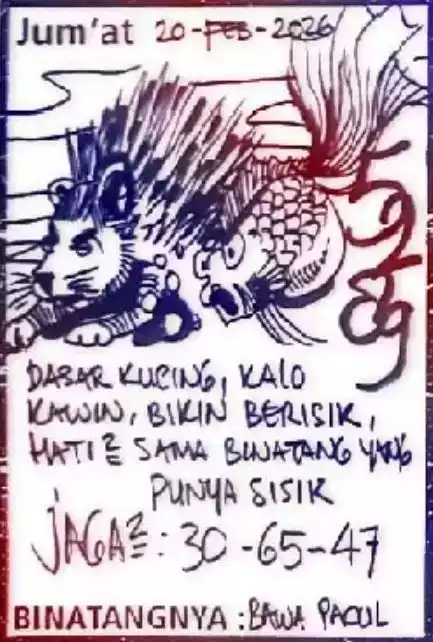 Jum'at 20-FEB-2026
DASAR KUCING, KALO
KAWIN, BIKIN BERISIK,
HATI2 SAMA BINATANG YANG
PUNYA SISIK
JAGA2: 30-65-47
BINATANGNYA: BAWA PACUL